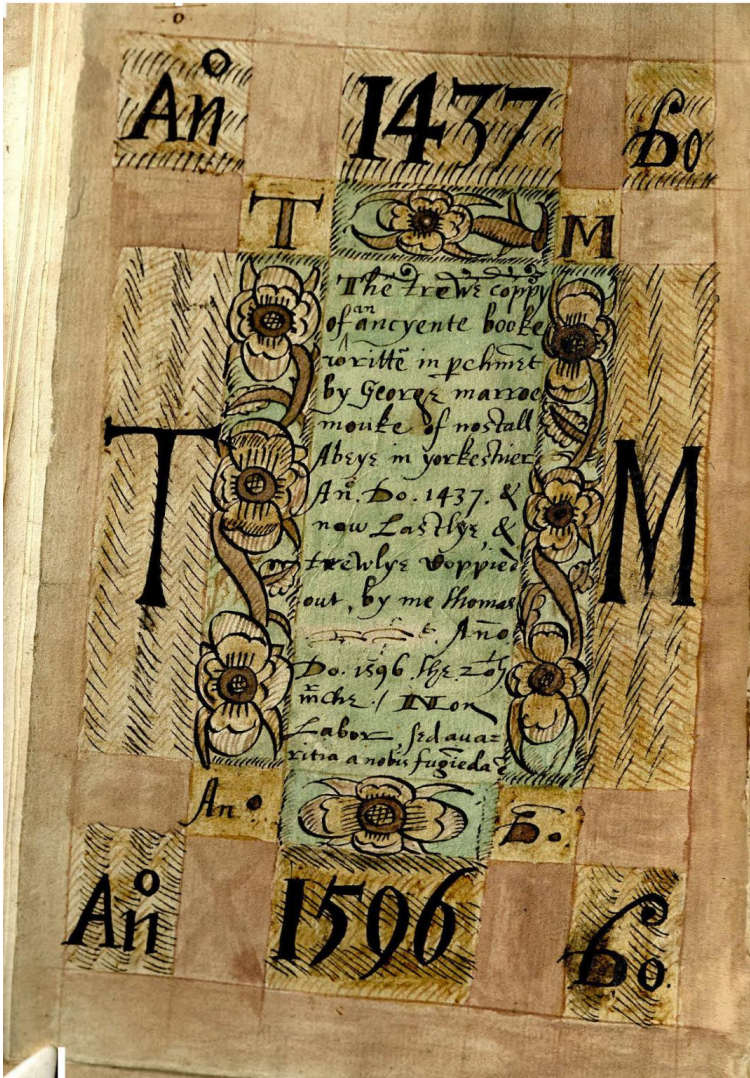 Ano 1437 Do
T M
The trewe coppy
of an ancyente booke
writtē in pchmēt
by George marroe
mouke of nostall
Abeye in yorkeshier
An̄. Do. 1437. &
now Lastlye, &
trewlye coppied
out, by me thomas
An̄o
Do. 1596 the 20th
mche. / Non
Labor, sed auar=
ritia a nobis fugiēda ē
T M
An o D o.
Ano 1596 Do.